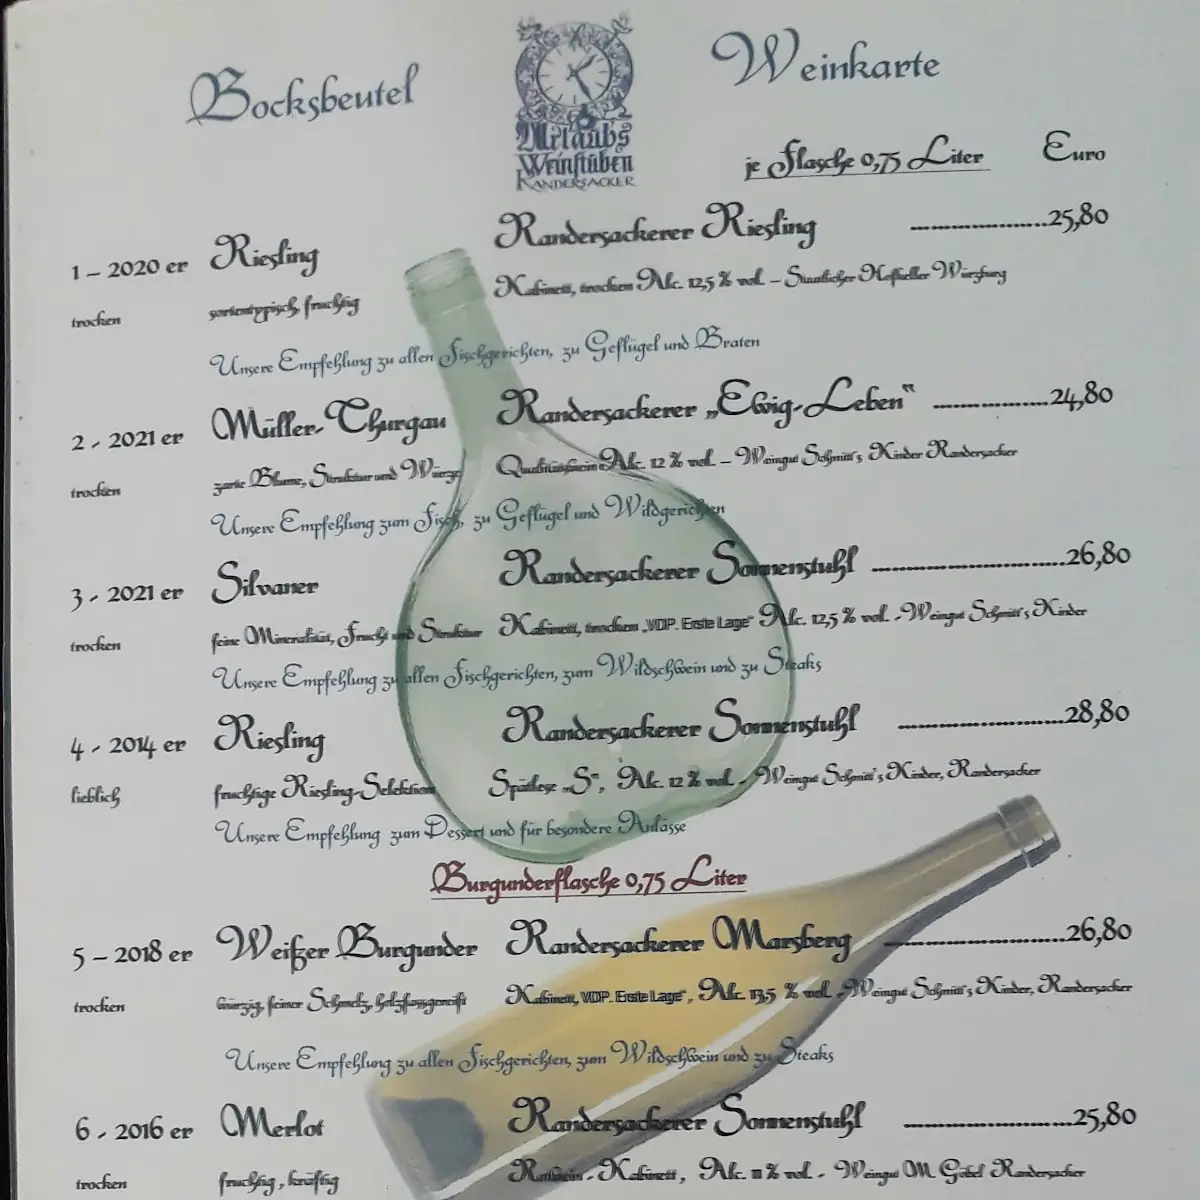 Bocksbeutel
Urlaubs
Weinstuben
RANDERSACKER
Weinkarte
je Flasche 0,75 Liter Euro
1 – 2020 er Riesling Randersackerer Riesling ......................25,80
trocken sortentypisch, fruchtig Kabinett, trocken Alc. 12,5 % vol. – Staatlicher Hofkeller Würzburg
Unsere Empfehlung zu allen Fischgerichten, zu Geflügel und Braten
2 - 2021 er Müller-Thurgau Randersackerer „Ewig-Leben“ ..................24,80
trocken zarte Blume, Struktur und Würze Qualitätswein Alc. 12 % vol. – Weingut Schmitt's Kinder Randersacker
Unsere Empfehlung zum Fisch, zu Geflügel und Wildgerichten
3 - 2021 er Silvaner Randersackerer Sonnenstuhl ...............................26,80
trocken feine Mineralität, Frucht und Struktur Kabinett, trocken „VDP. Erste Lage“ Alc. 12,5 % vol. -Weingut Schmitt's Kinder
Unsere Empfehlung zu allen Fischgerichten, zum Wildschwein und zu Steaks
4 - 2014 er Riesling Randersackerer Sonnenstuhl ..........................28,80
lieblich fruchtige Riesling-Selektion Spätlese „S“, Alc. 12 % vol. - Weingut Schmitt's Kinder, Randersacker
Unsere Empfehlung zum Dessert und für besondere Anlässe
Burgunderflasche 0,75 Liter
5 – 2018 er Weißer Burgunder Randersackerer Marsberg .............................26,80
trocken würzig, feiner Schmelz, holzfassgereift Kabinett, VDP. Erste Lage“, Alc. 13,5 % vol. -Weingut Schmitt's Kinder, Randersacker
Unsere Empfehlung zu allen Fischgerichten, zum Wildschwein und zu Steaks
6 - 2016 er Merlot Randersackerer Sonnenstuhl ...........................25,80
trocken fruchtig, kräftig Rotwein - Kabinett, Alc. 11 % vol. - Weingut M. Göbel Randersacker